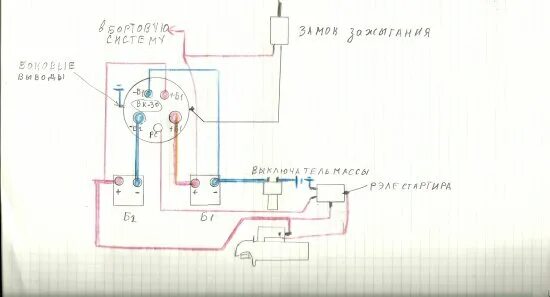 В БОРТОВУЮ
СИСТЕМУ
ЗАМОК ЗАЖЫГАНИЯ
БОКОВЫЕ
ВЫВОДЫ
-Б1
+Б1
ВК-30
-Б2
РС
ВЫКЛЮЧАТЕЛЬ МАССЫ
РЭЛЕ СТАРТИРА
+ -
+ -
Б2
Б1